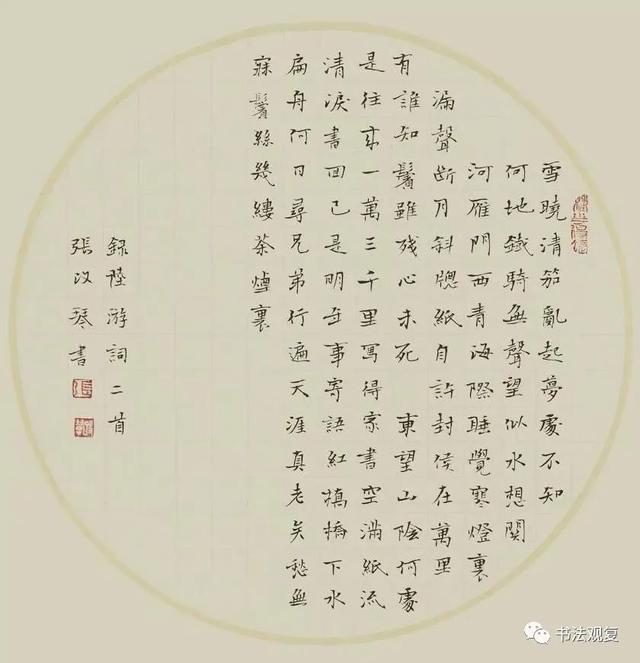 雪曉清笳亂起夢處不知
何地鐵騎無聲望似水想關
河雁門西青海際睡覺寒燈裏
漏聲斷月斜牕紙自許封侯在萬里
有誰知鬢雖殘心未死 東望山陰何處
是往來一萬三千里寫得家書空滿紙流
清淚書回已是明年事寄語紅橋下水
扁舟何日尋兄弟行遍天涯真老矣愁無
寐鬢絲幾縷茶煙裏
錄陸游詞二首
張改琴書
书法观复